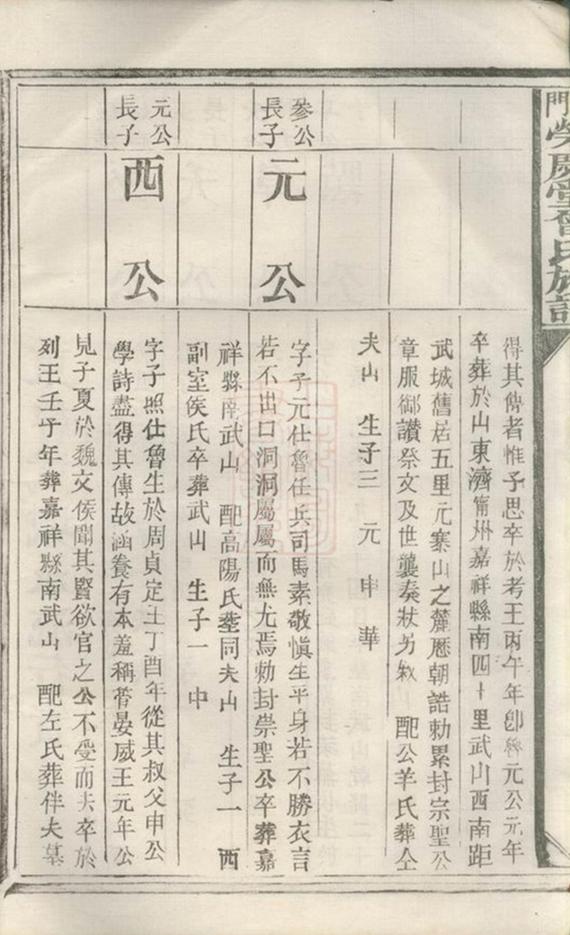 門榮慶堂曾氏族譜
得其傳者惟子思卒於考王丙午年卽魯元公元年
卒葬於山東濟甯州嘉祥縣南四十里武山西南距
武城舊居五里元寨山之麓歷朝誥勅累封宗聖公
章服御讚祭文及世襲奏狀另敘 配公羊氏葬仝
夫山 生子三 元 申 華
參公長子
元公
字子元仕魯任兵司馬素敬愼生平身若不勝衣言
若不出口洞洞屬屬而無尤焉勅封崇聖公卒葬嘉
祥縣南武山 配高陽氏塟同夫山 生子一 西
副室侯氏卒葬武山 生子一 中
元公長子
西公
字子照仕魯生於周貞定王丁酉年從其叔父申公
學詩盡得其傳故涵養有本羞稱管晏威王元年公
見子夏於魏文侯聞其賢欲官之公不受而去卒於
列王壬子年葬嘉祥縣南武山 配左氏葬伴夫墓